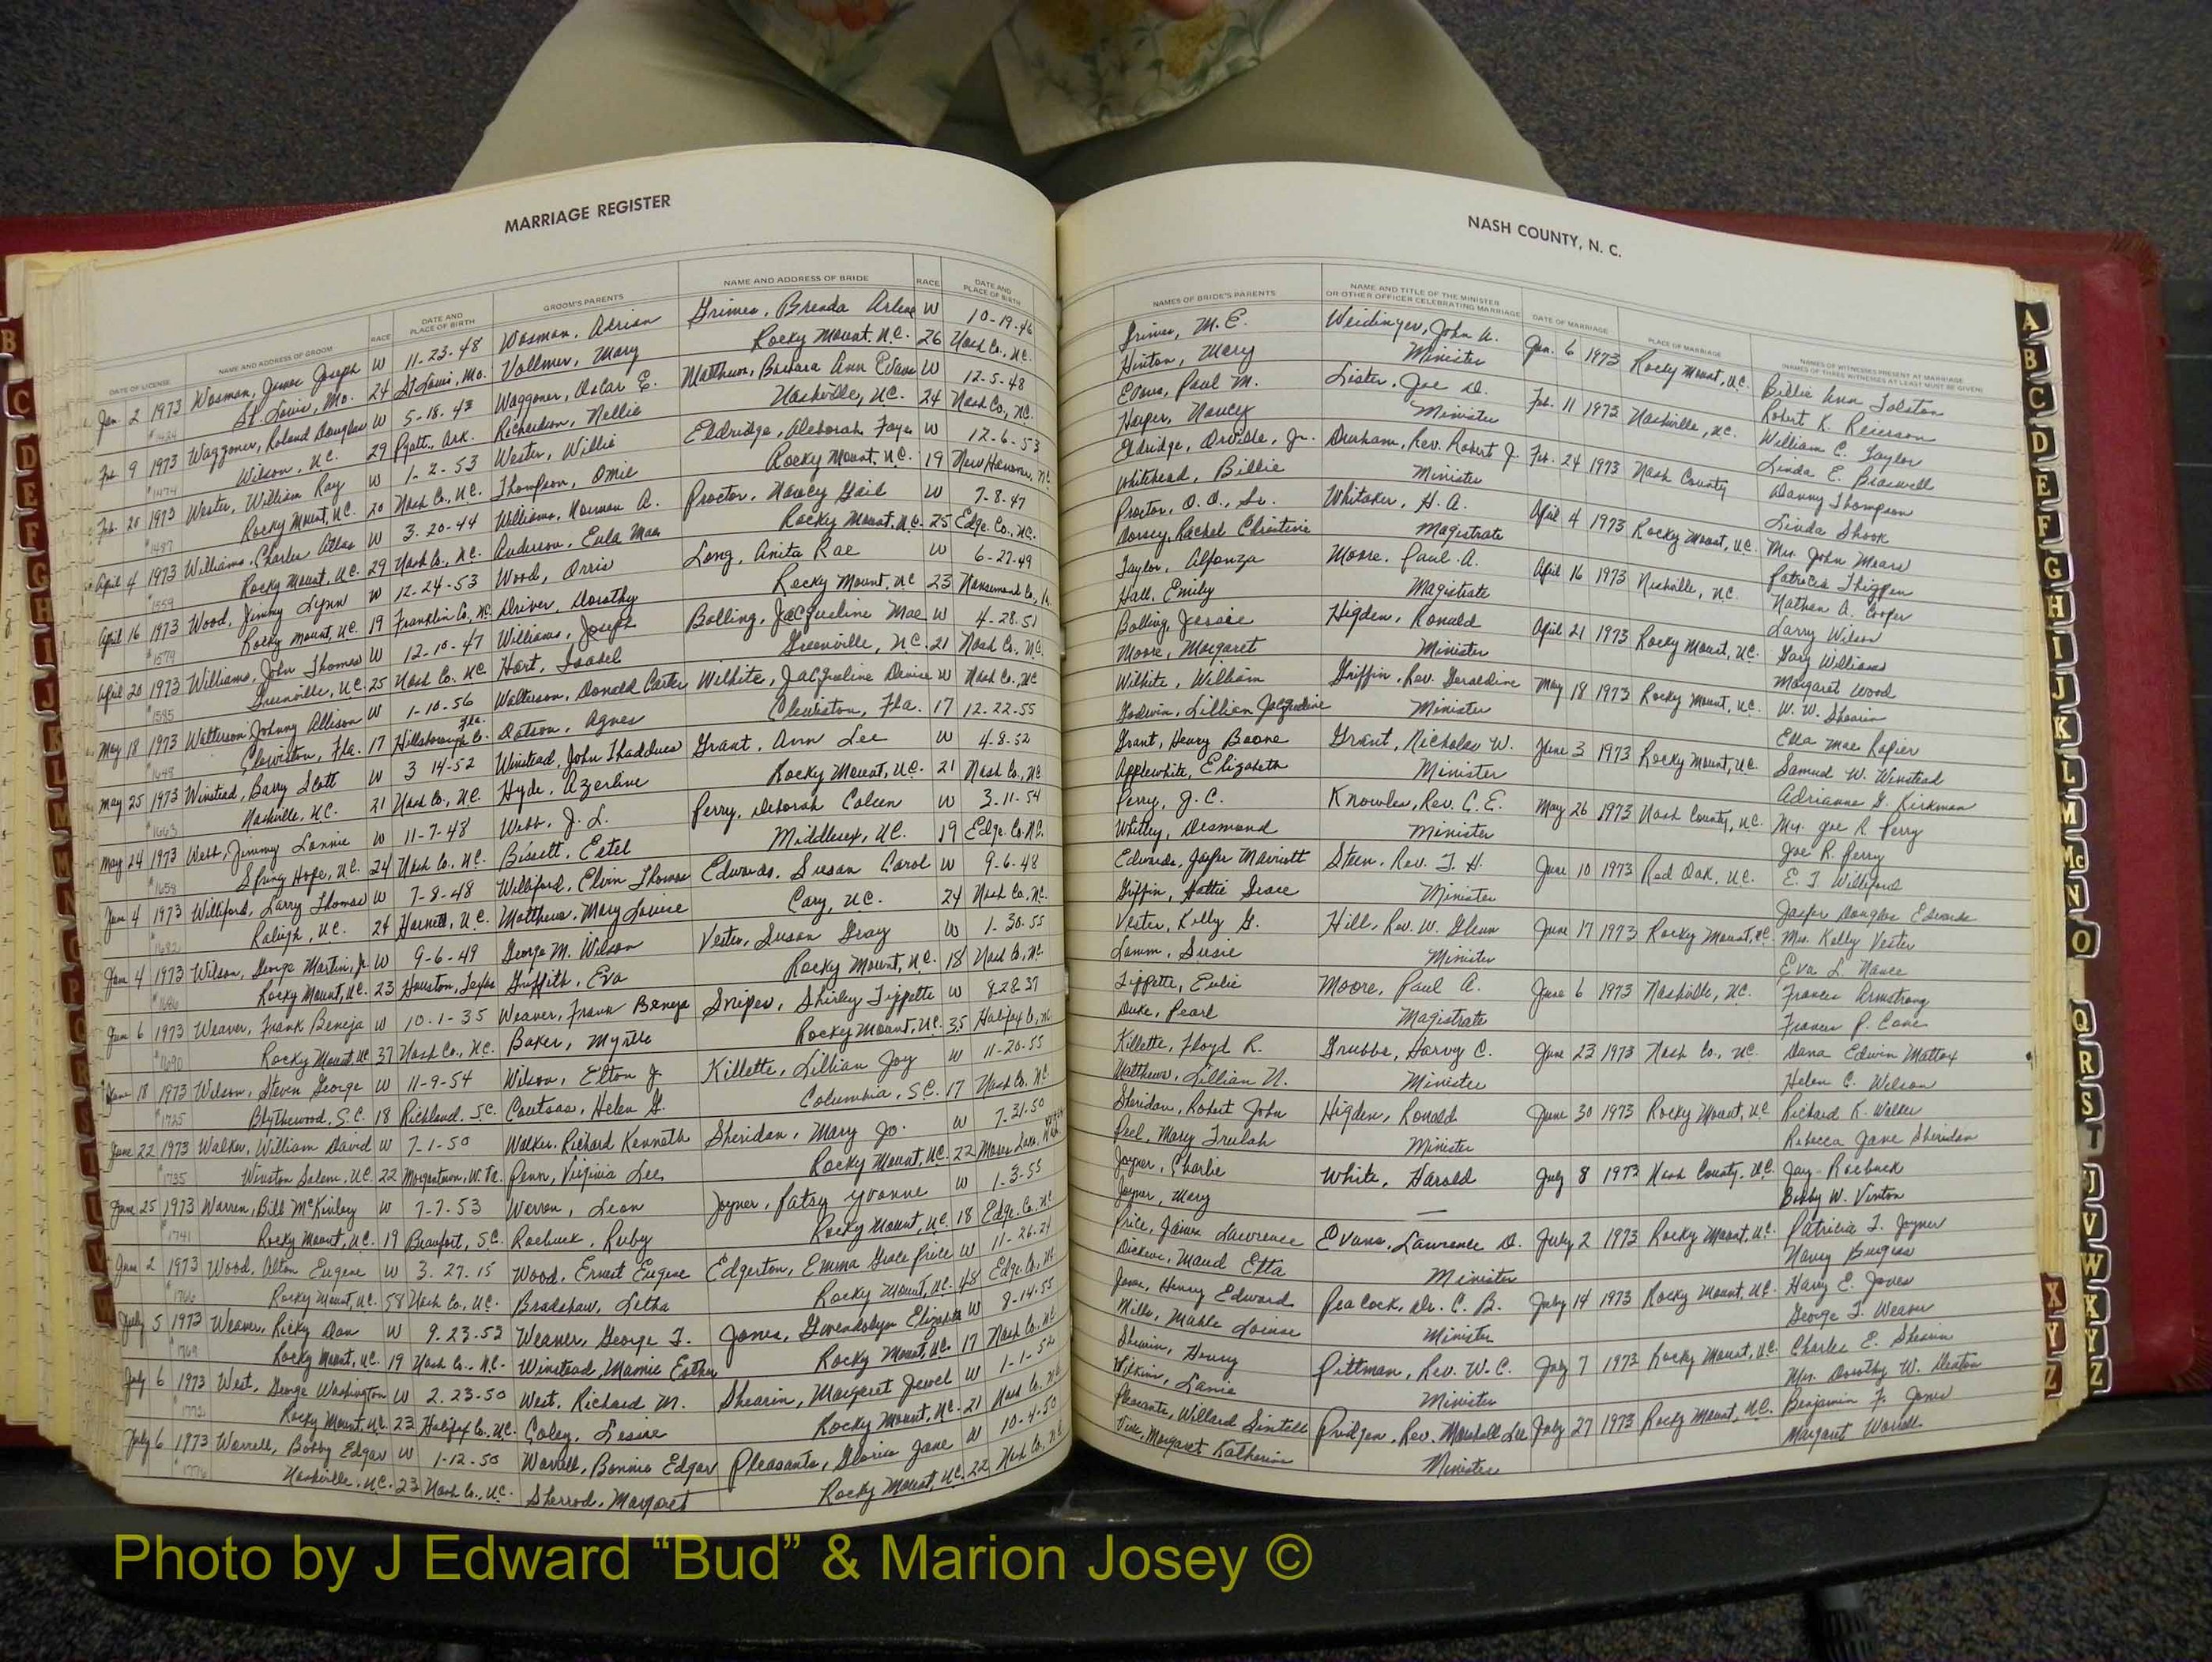 MARRIAGE REGISTER
DATE OF LICENSE NAME AND ADDRESS OF GROOM RACE DATE AND PLACE OF BIRTH GROOM'S PARENTS NAME AND ADDRESS OF BRIDE RACE DATE AND PLACE OF BIRTH
Jan. 2 1973 Wosman, James Joseph W 11-23-48 Wosman, Adrian Grimes, Brenda Arlene W 10-19-46
St. Louis, Mo. 24 St. Louis, Mo. Vollmer, Mary Rocky Mount, N.C. 26 Nash Co., N.C.
Feb. 9 1973 Waggoner, Roland Douglas W 5-18-43 Waggoner, Oscar E. Matthews, Barbara Ann Evans W 12-5-48
#1474 Wilson, N.C. 29 Pyatt, Ark. Richardson, Nellie Nashville, N.C. 24 Nash Co., N.C.
Feb. 20 1973 Wester, William Ray W 1-2-53 Wester, Willie Eldridge, Deborah Faye W 12-6-53
#1487 Rocky Mount, N.C. 20 Nash Co., N.C. Thompson, Omie Rocky Mount, N.C. 19 New Hanover, N.C.
April 4 1973 Williams, Charles Atlas W 3-20-44 Williams, Norman A. Proctor, Nancy Gail W 7-8-47
#1559 Rocky Mount, N.C. 29 Nash Co., N.C. Anderson, Eula Mae Rocky Mount, N.C. 25 Edge. Co., N.C.
April 16 1973 Wood, Jimmy Lynn W 12-24-53 Wood, Orris Long, Anita Rae W 6-27-49
#1579 Rocky Mount, N.C. 19 Franklin Co., N.C. Driver, Dorothy Rocky Mount, N.C. 23 Nansemond Co.,
April 20 1973 Williams, John Thomas W 12-10-47 Williams, Joseph Bolling, Jacqueline Mae W 4-28-51
#1585 Greenville, N.C. 25 Nash Co. N.C. Hart, Isabel Greenville, N.C. 21 Nash Co., N.C.
May 18 1973 Watterson Johnny Allison W 1-10-56 Watterson, Donald Carter Wilhite, Jacqueline Denise W Nash Co., N.C.
#1648 Clewiston, Fla. 17 Hillsborough Co. Fla. Dotson, Agnes Clewiston, Fla. 17 12-22-55
May 25 1973 Winstead, Barry Scott W 3 14-52 Winstead, John Thaddeus Grant, Ann Lee W 4-8-52
#1663 Nashville, N.C. 21 Nash Co., N.C. Hyde, Azerline Rocky Mount, N.C. 21 Nash Co., N.C.
May 24 1973 Webb, Jimmy Lonnie W 11-7-48 Webb, J. L. Perry, Deborah Coleen W 3-11-54
#1659 Spring Hope, N.C. 24 Nash Co., N.C. Bissett, Estel Middlesex, N.C. 19 Edge. Co. N.C.
June 4 1973 Williford, Larry Thomas W 7-8-48 Williford, Elvin Thomas Edwards, Susan Carol W 9-6-48
#1682 Raleigh, N.C. 24 Harnett, N.C. Matthews, Mary Louise Cary, N.C. 24 Nash Co., N.C.
June 4 1973 Wilson, George Martin, Jr. W 9-6-49 George M. Wilson Vester, Susan Gray W 1-30-55
#1686 Rocky Mount, N.C. 23 Houston, Texas Griffith, Eva Rocky Mount, N.C. 18 Nash Co., N.C.
June 6 1973 Weaver, Frank Beneja W 10-1-35 Weaver, Frank Beneja Snipes, Shirley Tippette W 8 28 37
#1690 Rocky Mount, N.C. 37 Nash Co., N.C. Baker, Myrtle Rocky Mount, N.C. 35 Halifax Co., N.C.
June 18 1973 Wilson, Steven George W 11-9-54 Wilson, Elton J. Killette, Lillian Joy W 11-20-55
#1725 Blythewood, S.C. 18 Richland, S.C. Coutsos, Helen G. Columbia, S.C. 17 Nash Co. N.C.
June 22 1973 Walker, William David W 7-1-50 Walker, Richard Kenneth Sheridan, Mary Jo. W 7-31-50
#1735 Winston Salem, N.C. 22 Morgantown, W. Va. Penn, Virginia Lee Rocky Mount, N.C. 22 Moses Lake, Wash.
June 25 1973 Warren, Bill McKinley W 7-7-53 Warren, Leon Joyner, Patsy Yvonne W 1-3-55
#1741 Rocky Mount, N.C. 19 Beaufort, S.C. Roebuck, Ruby Rocky Mount, N.C. 18 Edge. Co. N.C.
June 2 1973 Wood, Alton Eugene W 3-27-15 Wood, Ernest Eugene Edgerton, Emma Grace Price W 11-26-24
Rocky Mount, N.C. 58 Nash Co., N.C. Bradshaw, Letha Rocky Mount, N.C. 48 Edge. Co., N.C.
July 5 1973 Weaver, Ricky Don W 9-23-53 Weaver, George T. Jones, Gwendolyn Elizabeth W 8-14-55
#1769 Rocky Mount, N.C. 19 Nash Co., N.C. Winstead, Mamie Esther Rocky Mount, N.C. 17 Nash Co. N.C.
July 6 1973 West, George Washington W 2-23-50 West, Richard M. Shearin, Margaret Jewel W 1-1-52
Rocky Mount, N.C. 23 Halifax Co., N.C. Coley, Lessie Rocky Mount, N.C. 21 Nash Co. N.C.
July 6 1973 Worrell, Bobby Edgar W 1-12-50 Worrell, Bonnie Edgar Pleasants, Gloria Jane W 10-4-50
Nashville, N.C. 23 Nash Co., N.C. Sherrod, Margaret Rocky Mount, N.C. 22 Nash Co., N.C.
NASH COUNTY, N. C.
NAMES OF BRIDE'S PARENTS NAME AND TITLE OF THE MINISTER OR OTHER OFFICER CELEBRATING MARRIAGE DATE OF MARRIAGE PLACE OF MARRIAGE NAMES OF WITNESSES PRESENT AT MARRIAGE (NAMES OF THREE WITNESSES AT LEAST MUST BE GIVEN)
Grimes, M. E. Weidinger, John A. Jan. 6 1973 Rocky Mount, N.C. Billie Ann Tolston
Hinton, Mary Minister Robert K. Reierson
Evans, Paul M. Lister, Joe D. Feb. 11 1973 Nashville, N.C. William C. Taylor
Harper, Nancy Minister Linda E. Braswell
Eldridge, Orville, Jr. Durham, Rev. Robert J. Feb. 24 1973 Nash County Danny Thompson
Whitehead, Billie Minister Linda Shook
Proctor, O. D., Sr. Whitaker, H. A. April 4 1973 Rocky Mount, N.C. Mrs. John Mears
Dorsey, Rachel Christine Magistrate Patricia Thigpen
Taylor, Alfonza Moore, Paul A. April 16 1973 Nashville, N.C. Nathan A. Cooper
Hall, Emily Magistrate Larry Wilson
Bolling, Jessie Higden, Ronald April 21 1973 Rocky Mount, N.C. Gary Williams
Moore, Margaret Minister Margaret Wood
Wilhite, William Griffin, Rev. Geraldine May 18 1973 Rocky Mount, N.C. W. W. Shearin
Godwin, Lillian Jacqueline Minister Ella Mae Rapier
Grant, Henry Boone Grant, Nicholas W. June 3 1973 Rocky Mount, N.C. Samuel W. Winstead
Applewhite, Elizabeth Minister Adrianne G. Kirkman
Perry, J. C. Knowles, Rev. C. E. May 26 1973 Nash County, N.C. Mrs. Joe R. Perry
Whitley, Desmond Minister Joe R. Perry
Edwards, Jasper Marriott Steen, Rev. T. H. June 10 1973 Red Oak, N.C. E. T. Williford
Griffin, Hattie Grace Minister Jasper Douglas Edwards
Vester, Kelly G. Hill, Rev. W. Glenn June 17 1973 Rocky Mount, N.C. Mrs. Kelly Vester
Lamm, Susie Minister Eva L. Nance
Tippette, Eulie Moore, Paul A. June 6 1973 Nashville, N.C. Frances Armstrong
Duke, Pearl Magistrate Frances P. Cone
Killette, Floyd R. Grubbs, Harvy C. June 23 1973 Nash Co., N.C. Dana Edwin Mattox
Matthews, Lillian N. Minister Helen C. Wilson
Sheridan, Robert John Higden, Ronald June 30 1973 Rocky Mount, N.C. Richard K. Walker
Peel, Mary Trulah Minister Rebecca Jane Sheridan
Joyner, Charlie White, Harold July 8 1973 Nash County, N.C. Jay Roebuck
Joyner, Mary — Bobby W. Vinton
Price, James Lawrence Evans, Lawrence D. July 2 1973 Rocky Mount, N.C. Patricia T. Joyner
Dickens, Maud Etta Minister Nancy Burgess
Jones, Henry Edward Peacock, Dr. C. B. July 14 1973 Rocky Mount, N.C. Harry E. Jones
Mills, Mable Louise Minister George T. Weaver
Shearin, Henry Pittman, Rev. W. C. July 7 1973 Rocky Mount, N.C. Charles E. Shearin
Wilkins, Lanie Minister Mrs. Dorothy W. Deaton
Pleasants, Willard Sintell Pridgen, Rev. Marshall Lee July 27 1973 Rocky Mount, N.C. Benjamin F. Jones
Vick, Margaret Katherine Minister Margaret Worrell
A
B
C
D
E
F
G
H
I
J
K
L
M
Mc
N
O
Q
R
S
T
U
V
W
X
Y
Z
Photo by J Edward “Bud” & Marion Josey ©